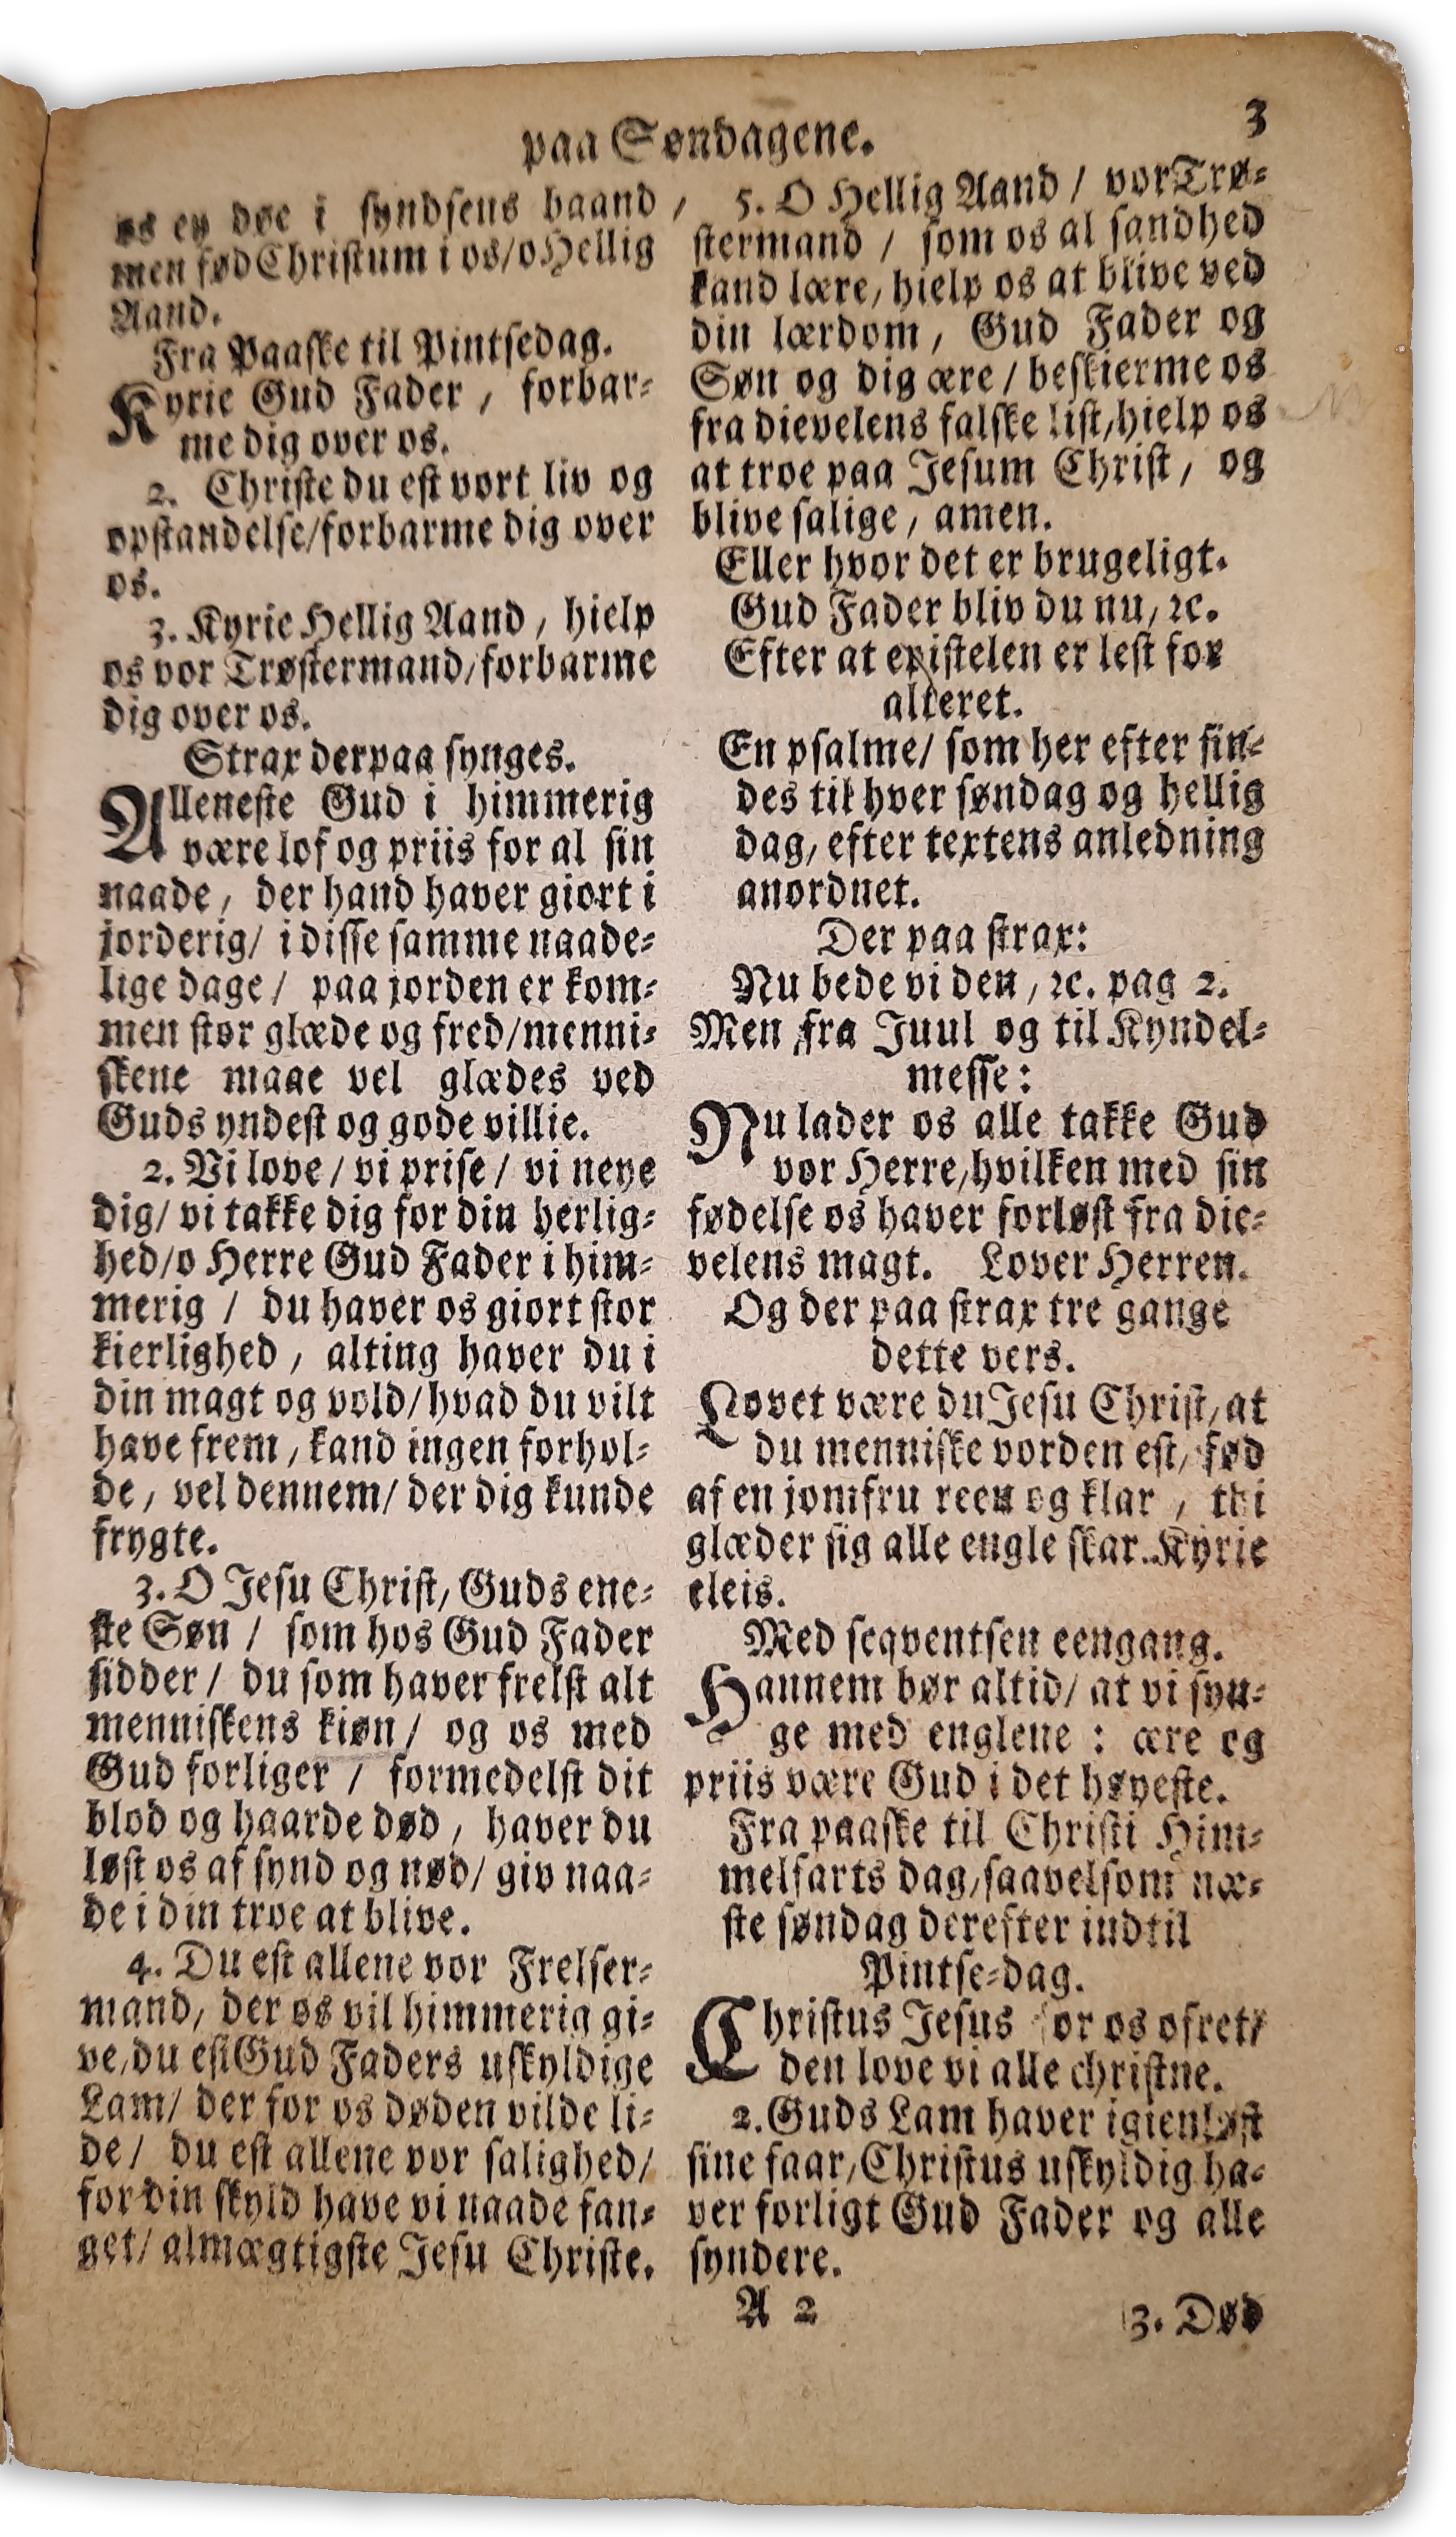 paa Søndagene.
3
os ey døe i syndsens baand /
men fød Christum i os/o Hellig
Aand.
Fra Paaske til Pintsedag.
Kyrie Gud Fader / forbar-
me dig over os.
2. Christe du est vort liv og
opstandelse/forbarme dig over
os.
3. Kyrie Hellig Aand / hielp
os vor Trøstermand/forbarme
dig over os.
Strax derpaa synges.
Alleneste Gud i himmerig
være lof og priis for al sin
naade / der hand haver giort i
jorderig/ i disse samme naade-
lige dage / paa jorden er kom-
men stor glæde og fred/menni-
skene maae vel glædes ved
Guds yndest og gode villie.
2. Vi love / vi prise / vi neye
dig/ vi takke dig for din herlig-
hed/o Herre Gud Fader i him-
merig / du haver os giort stor
kierlighed / alting haver du i
din magt og vold/hvad du vilt
have frem / kand ingen forhol-
de / vel dennem/ der dig kunde
frygte.
3. O Jesu Christ/ Guds ene-
ste Søn / som hos Gud Fader
sidder / du som haver frelst alt
menniskens kiøn / og os med
Gud forliger / formedelst dit
blod og haarde død / haver du
løst os af synd og nød/ giv naa-
de i din troe at blive.
4. Du est allene vor Frelser-
mand/ der os vil himmerig gi-
ve/du est Gud Faders uskyldige
Lam/ der for os døden vilde li-
de / du est allene vor salighed/
for din skyld have vi naade fan-
get/ almægtigste Jesu Christe.
5. O Hellig Aand / vor Trø-
stermand / som os al sandhed
kand lære/ hielp os at blive ved
din lærdom / Gud Fader og
Søn og dig ære / beskierme os
fra dievelens falske list/hielp os
at troe paa Jesum Christ / og
blive salige / amen.
Eller hvor det er brugeligt.
Gud Fader bliv du nu/ ꝛc.
Efter at epistelen er lest for
alteret.
En psalme/ som her efter fin-
des til hver søndag og hellig
dag/ efter textens anledning
anordnet.
Der paa strax:
Nu bede vi den / ꝛc. pag 2.
Men fra Juul og til Kyndel-
messe:
Nu lader os alle takke Gud
vor Herre/hvilken med sin
fødelse os haver forløst fra die-
velens magt. Lover Herren.
Og der paa strax tre gange
dette vers.
Lovet være du Jesu Christ/ at
du menniske vorden est/ fød
af en jomfru reen og klar / thi
glæder sig alle engle skar. Kyrie
eleis.
Med seqventsen eengang.
Hannem bør altid/ at vi syn-
ge med englene : ære og
priis være Gud i det høyeste.
Fra paaske til Christi Him-
melfarts dag/saavelsom næ-
ste søndag derefter indtil
Pintse-dag.
Christus Jesus for os ofret/
den love vi alle christne.
2. Guds Lam haver igienløst
sine faar/Christus uskyldig ha-
ver forligt Gud Fader og alle
syndere.
A 2
3. Død